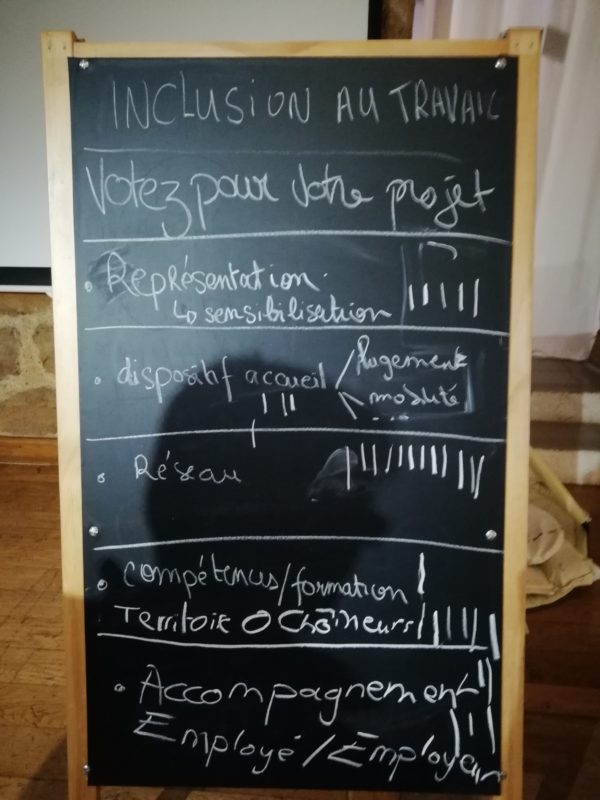 INCLUSION AU TRAVAIL
Votez pour votre projet
• Représentation
↳ sensibilisation
• dispositif accueil / logement
mobilité
...
• Réseau
• compétences/formation
Territoire 0 Chômeurs
• Accompagnement
Employé / Employeur